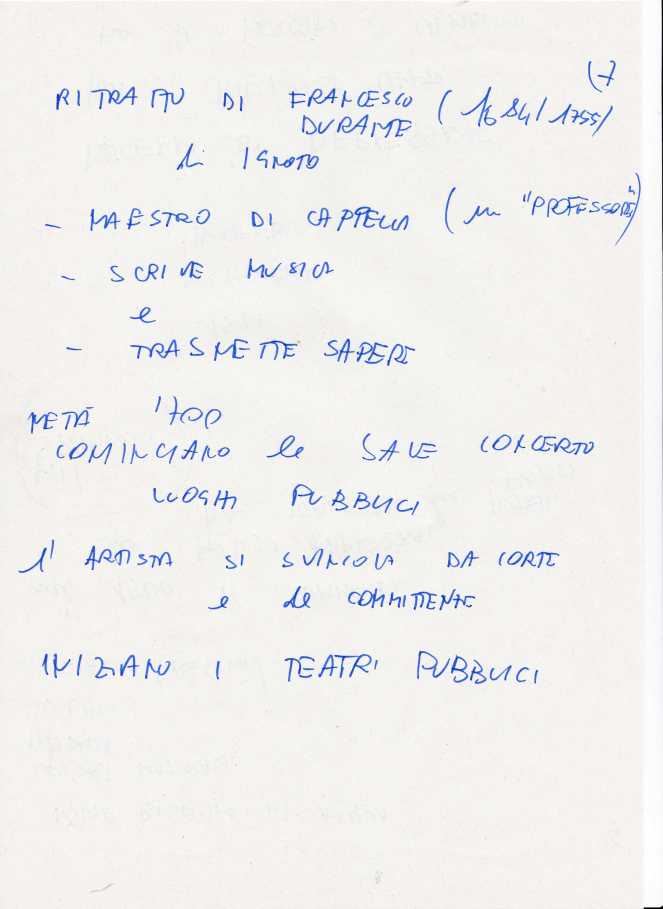 (7
RITRATTO DI FRANCESCO (1684/1755)
DURANTE
di IGNOTO
- MAESTRO DI CAPPELLA (un "PROFESSORE")
- SCRIVE MUSICA
e
- TRASMETTE SAPERI
METÀ 1700
COMINCIANO le SALE CONCERTO
LUOGHI PUBBLICI
l' ARTISTA SI SVINCOLA DA CORTE
e dal COMMITTENTE
INIZIANO I TEATRI PUBBLICI